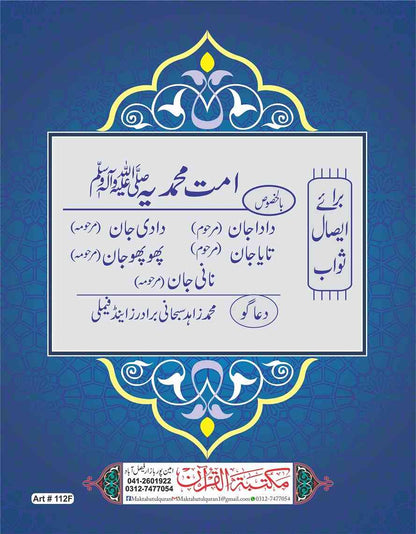 برائے
ایصال
ثواب
امت محمدیہ صلی اللہ علیہ وآلہ وسلم
بالخصوص
دادا جان (مرحوم) دادی جان (مرحومہ)
تایا جان (مرحوم) پھوپھو جان (مرحومہ)
نانی جان (مرحومہ)
دعا گو محمد زاہد سبحانی برادرز اینڈ فیملی
مکتبۃ القرآن
امین پور بازار فیصل آباد
041-2601922
0312-7477054
Maktabatulquran Maktabatulquran1@gmail.com 0312-7477054
Art # 112F